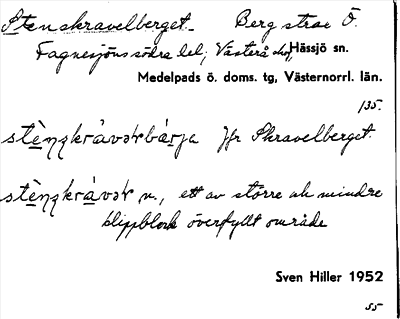 Stenskravelberget. Berg strax Ö.
Fagnesjöns södra del, Västerå by, Hässjö sn.
Medelpads ö. doms. tg, Västernorrl. län.
135.
Jfr Skravelberget.
n., ett av större och mindre
klippblock överfyllt område
Sven Hiller 1952
55